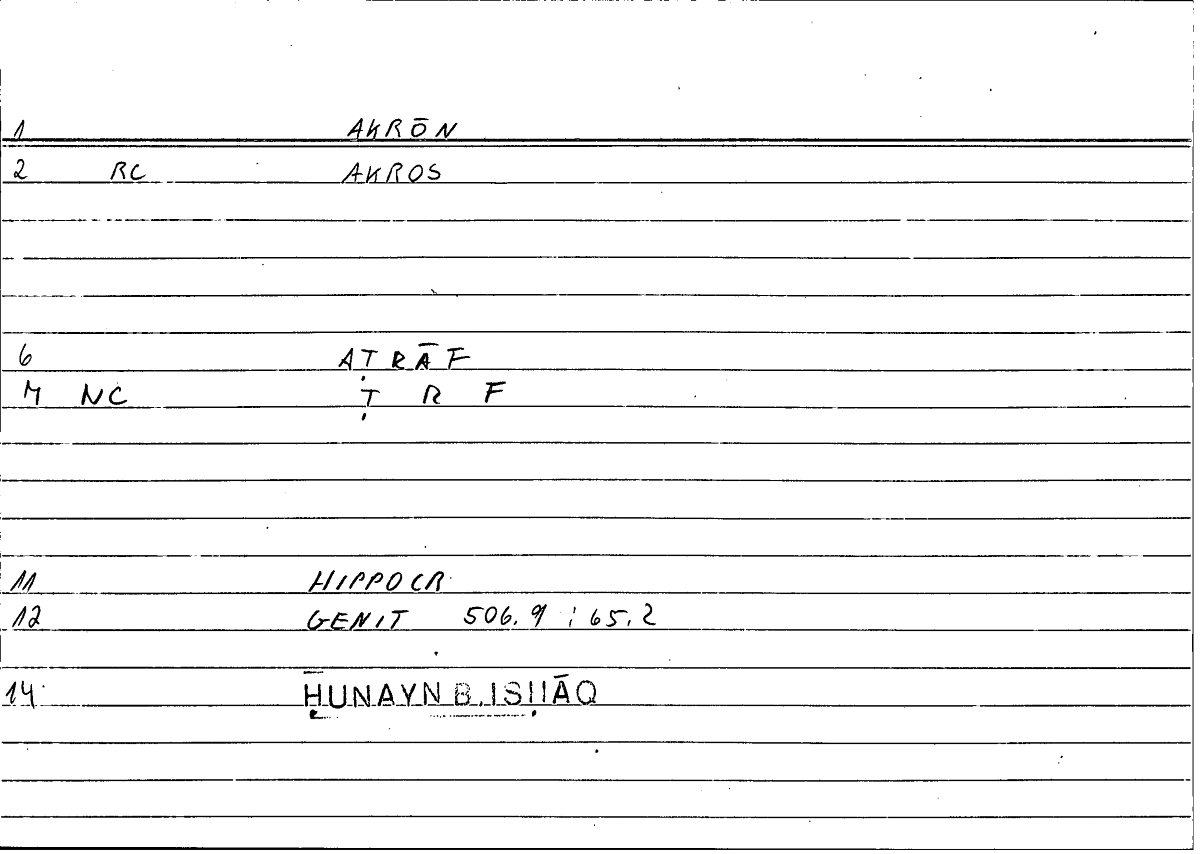 1 AKRŌN
2 RC AKROS
6 AṬRĀF
M NC Ṭ R F
11 HIPPOCR
12 GENIT 506.9 ; 65.2
14 ḤUNAYN B. ISḤĀQ